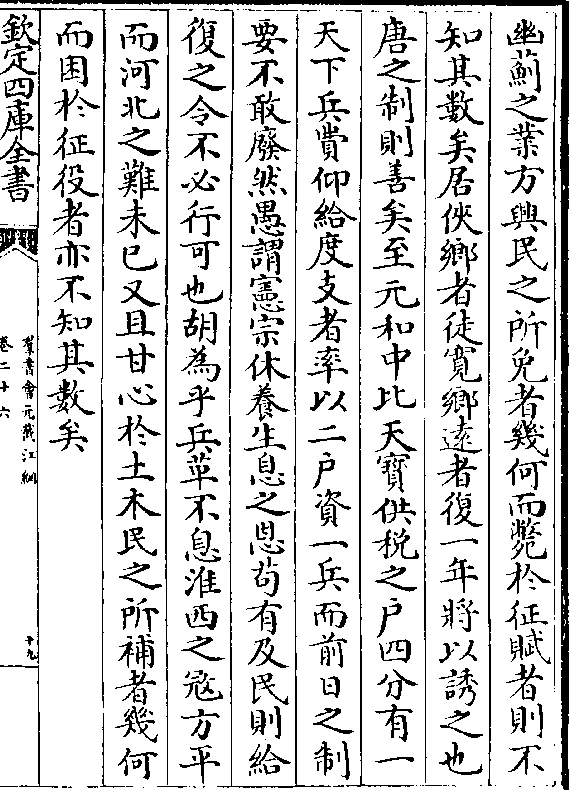 幽薊之業方興民之所免者幾何而斃於征賦者則不
知其數矣居俠鄉者徒寛鄉逺者復一年將以誘之也
唐之制則善矣至元和中比天寳供税之户四分有一
天下兵費仰給度支者率以二户資一兵而前日之制
要不敢廢然愚謂憲宗休養生息之恩茍有及民則給
復之令不必行可也胡為乎兵革不息淮西之冦方平
而河北之難未已又且甘心於土木民之所補者幾何
而困於征役者亦不知其數矣
欽定四庫全書
羣書㑹元截江網
卷二十六
十九